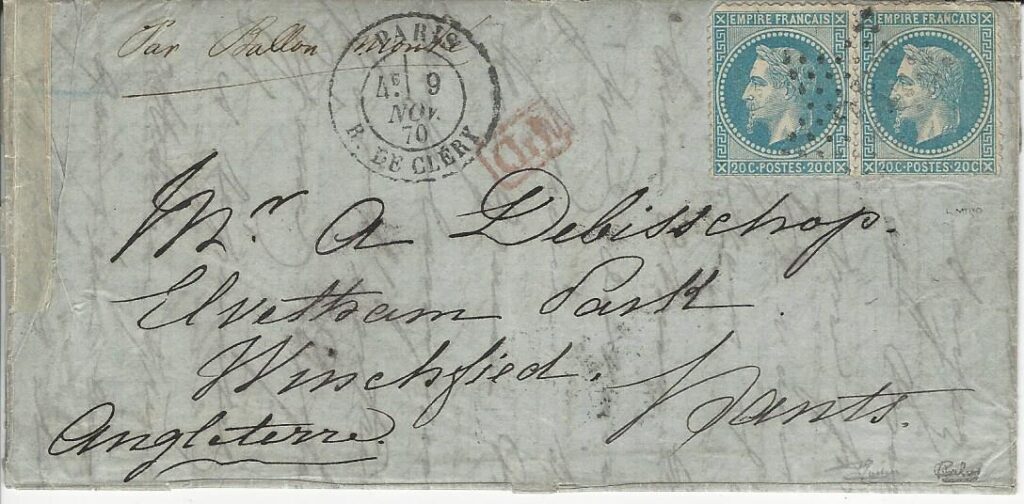 Par Ballon monté
PARIS
4ᴱ 9
NOV.
70
R. DE CLÉRY
PD
EMPIRE FRANCAIS
20C·POSTES·20C
EMPIRE FRANCAIS
20C·POSTES·20C
Mr. A Debisschop.
Elvetham Park
Winchfied. Hants.
Angleterre.